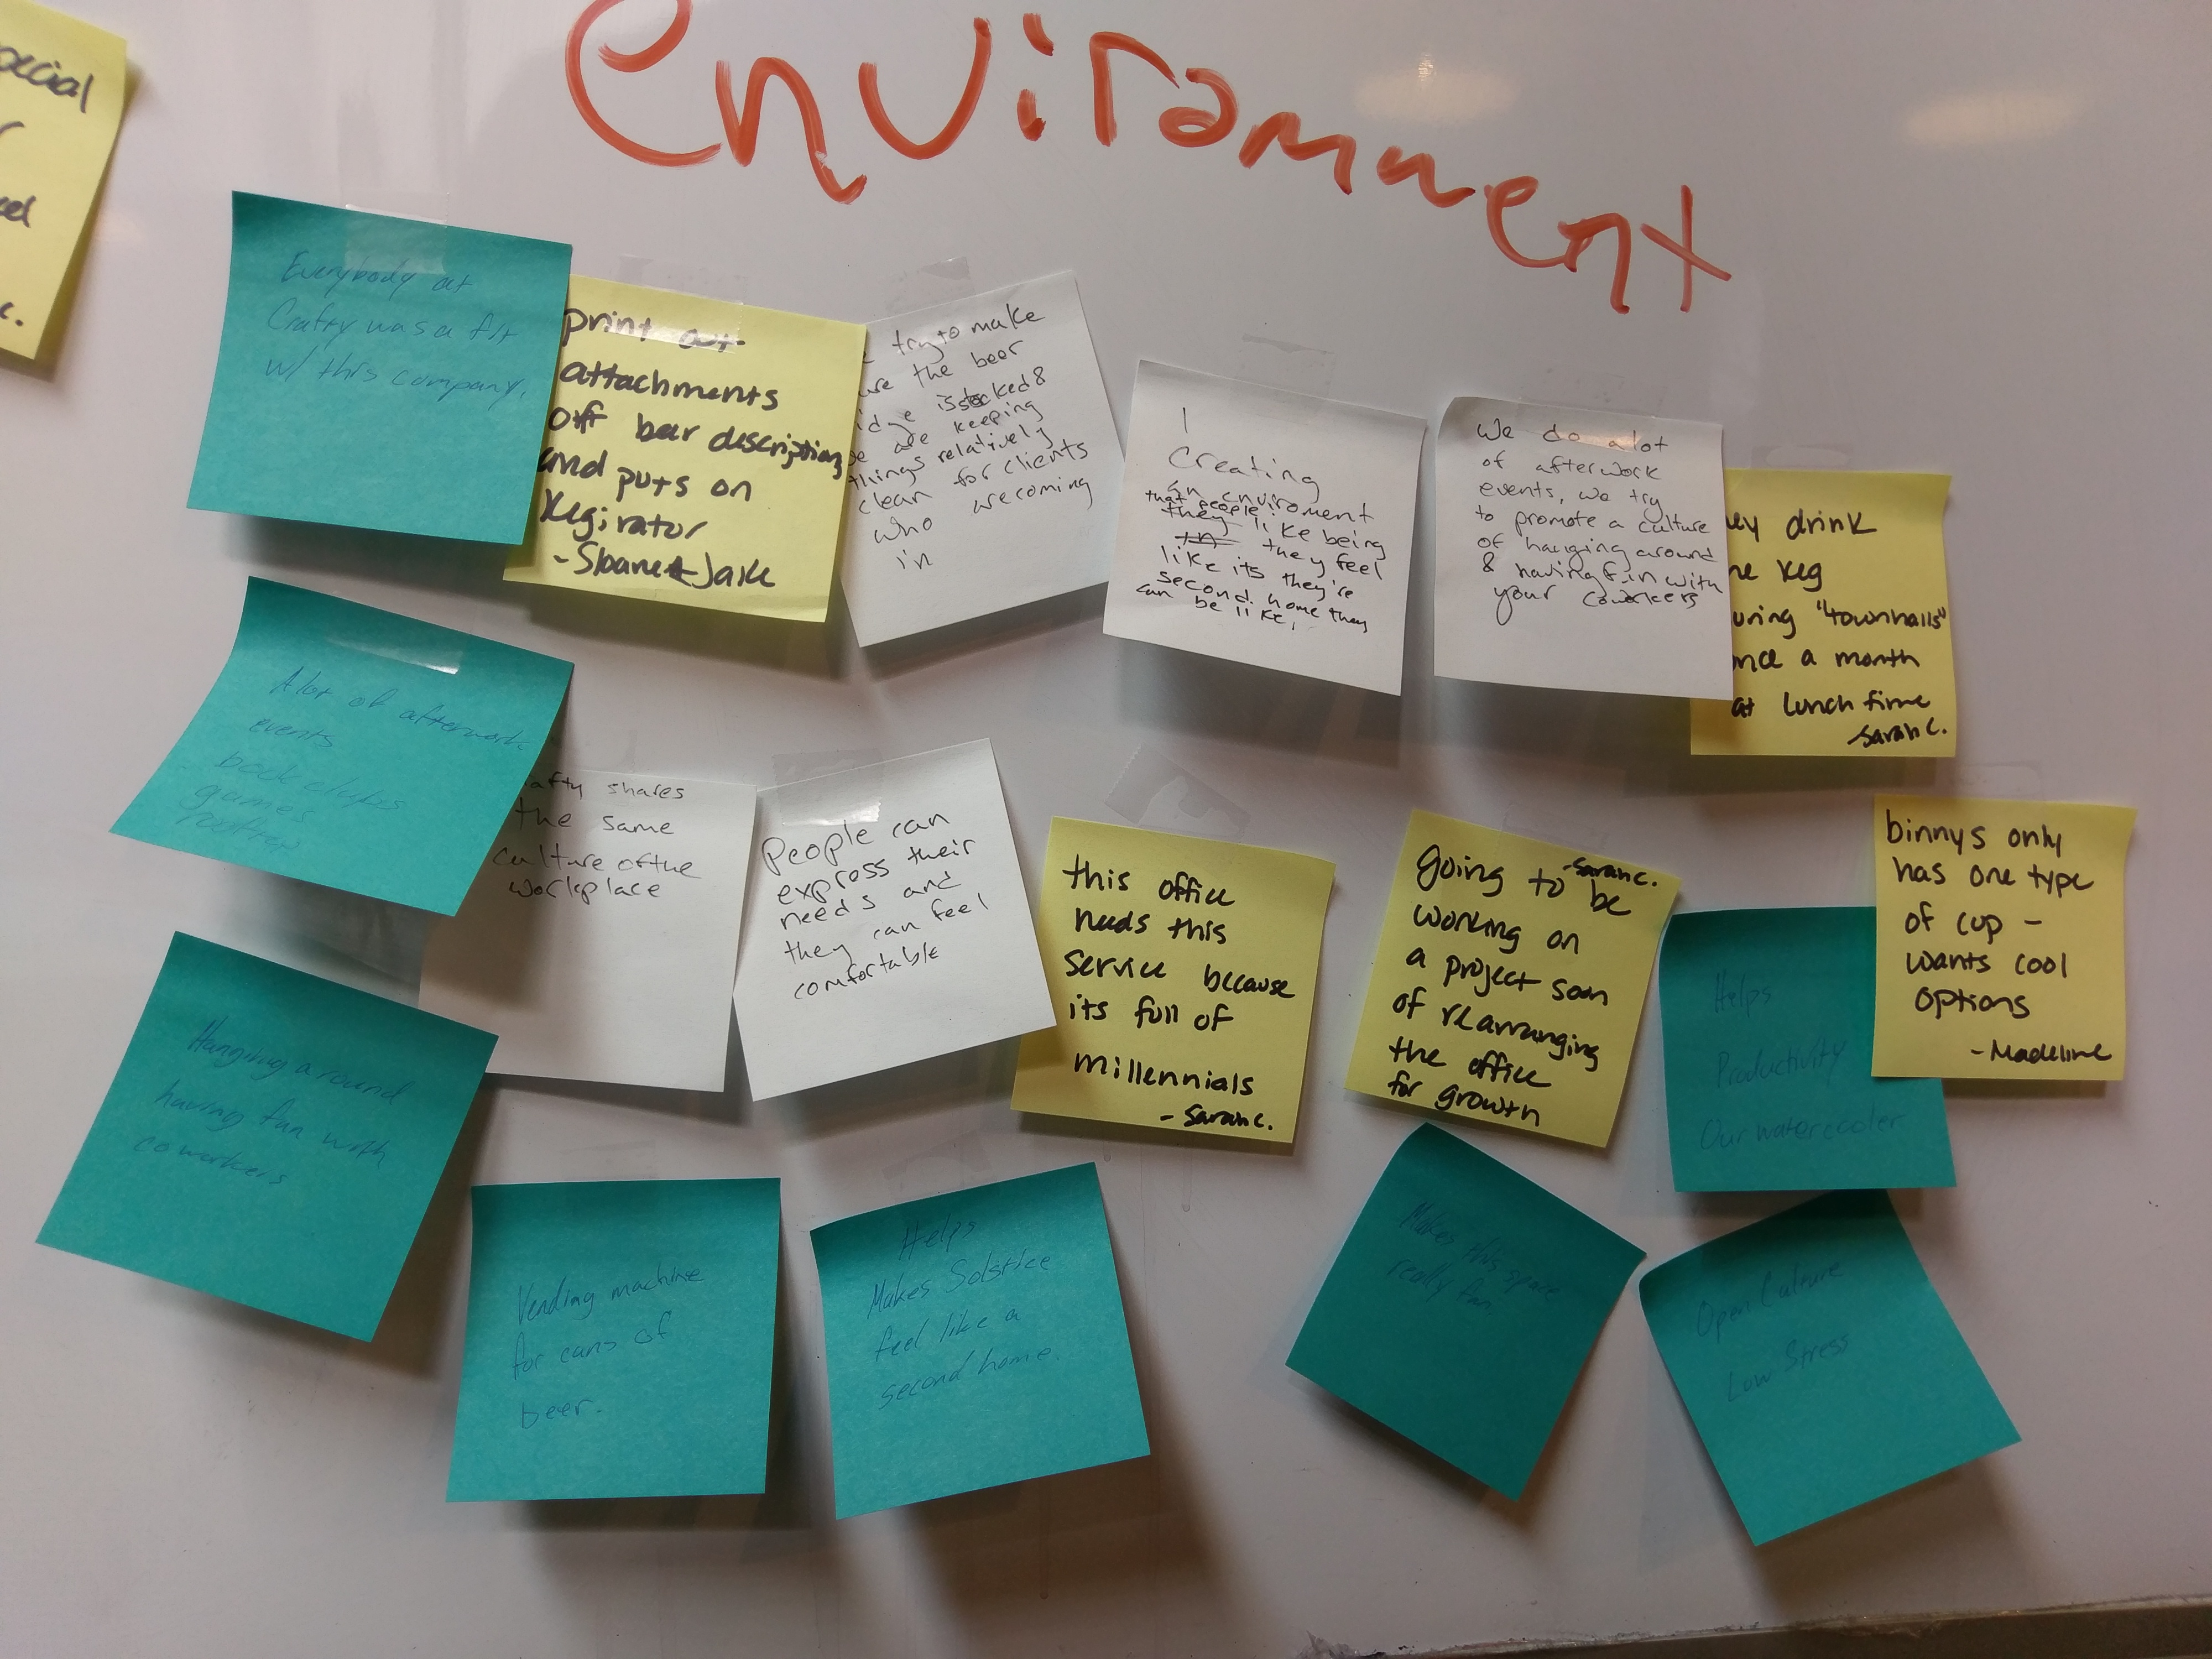 Enviroment
ecial
c.
Everybody at
Crafty was a fit
w/ this company.
print out
attachments
off beer descriptions
and puts on
Kegirator
- Sloane + Jake
try to make
the beer
is stocked &
are keeping
things relatively
clean for clients
who are coming
in
I
Creating
an enviroment
that people
they like being
in they feel
like its they're
second home they
can be like,
We do alot
of afterwork
events, we try
to promote a culture
of hanging around
& having fun with
your coworkers
ey drink
he keg
uring "townhalls"
nce a month
at lunch time
- Sarah C.
A lot of afterwork
events
bookclubs
games
rooftop
afty shares
the same
culture of the
workplace
People can
express their
needs and
they can feel
comfortable
this office
needs this
service because
its full of
millennials
- Sarah C.
- Sarah C.
going to be
working on
a project soon
of rearranging
the office
for growth
binnys only
has one type
of cup -
wants cool
options
- Madeline
Helps
Productivity
Our watercooler
Hanging around
having fun with
coworkers
Vending machine
for cans of
beer.
Helps
Makes Solstice
feel like a
second home.
Makes this space
really fun
Open Culture
Low Stress